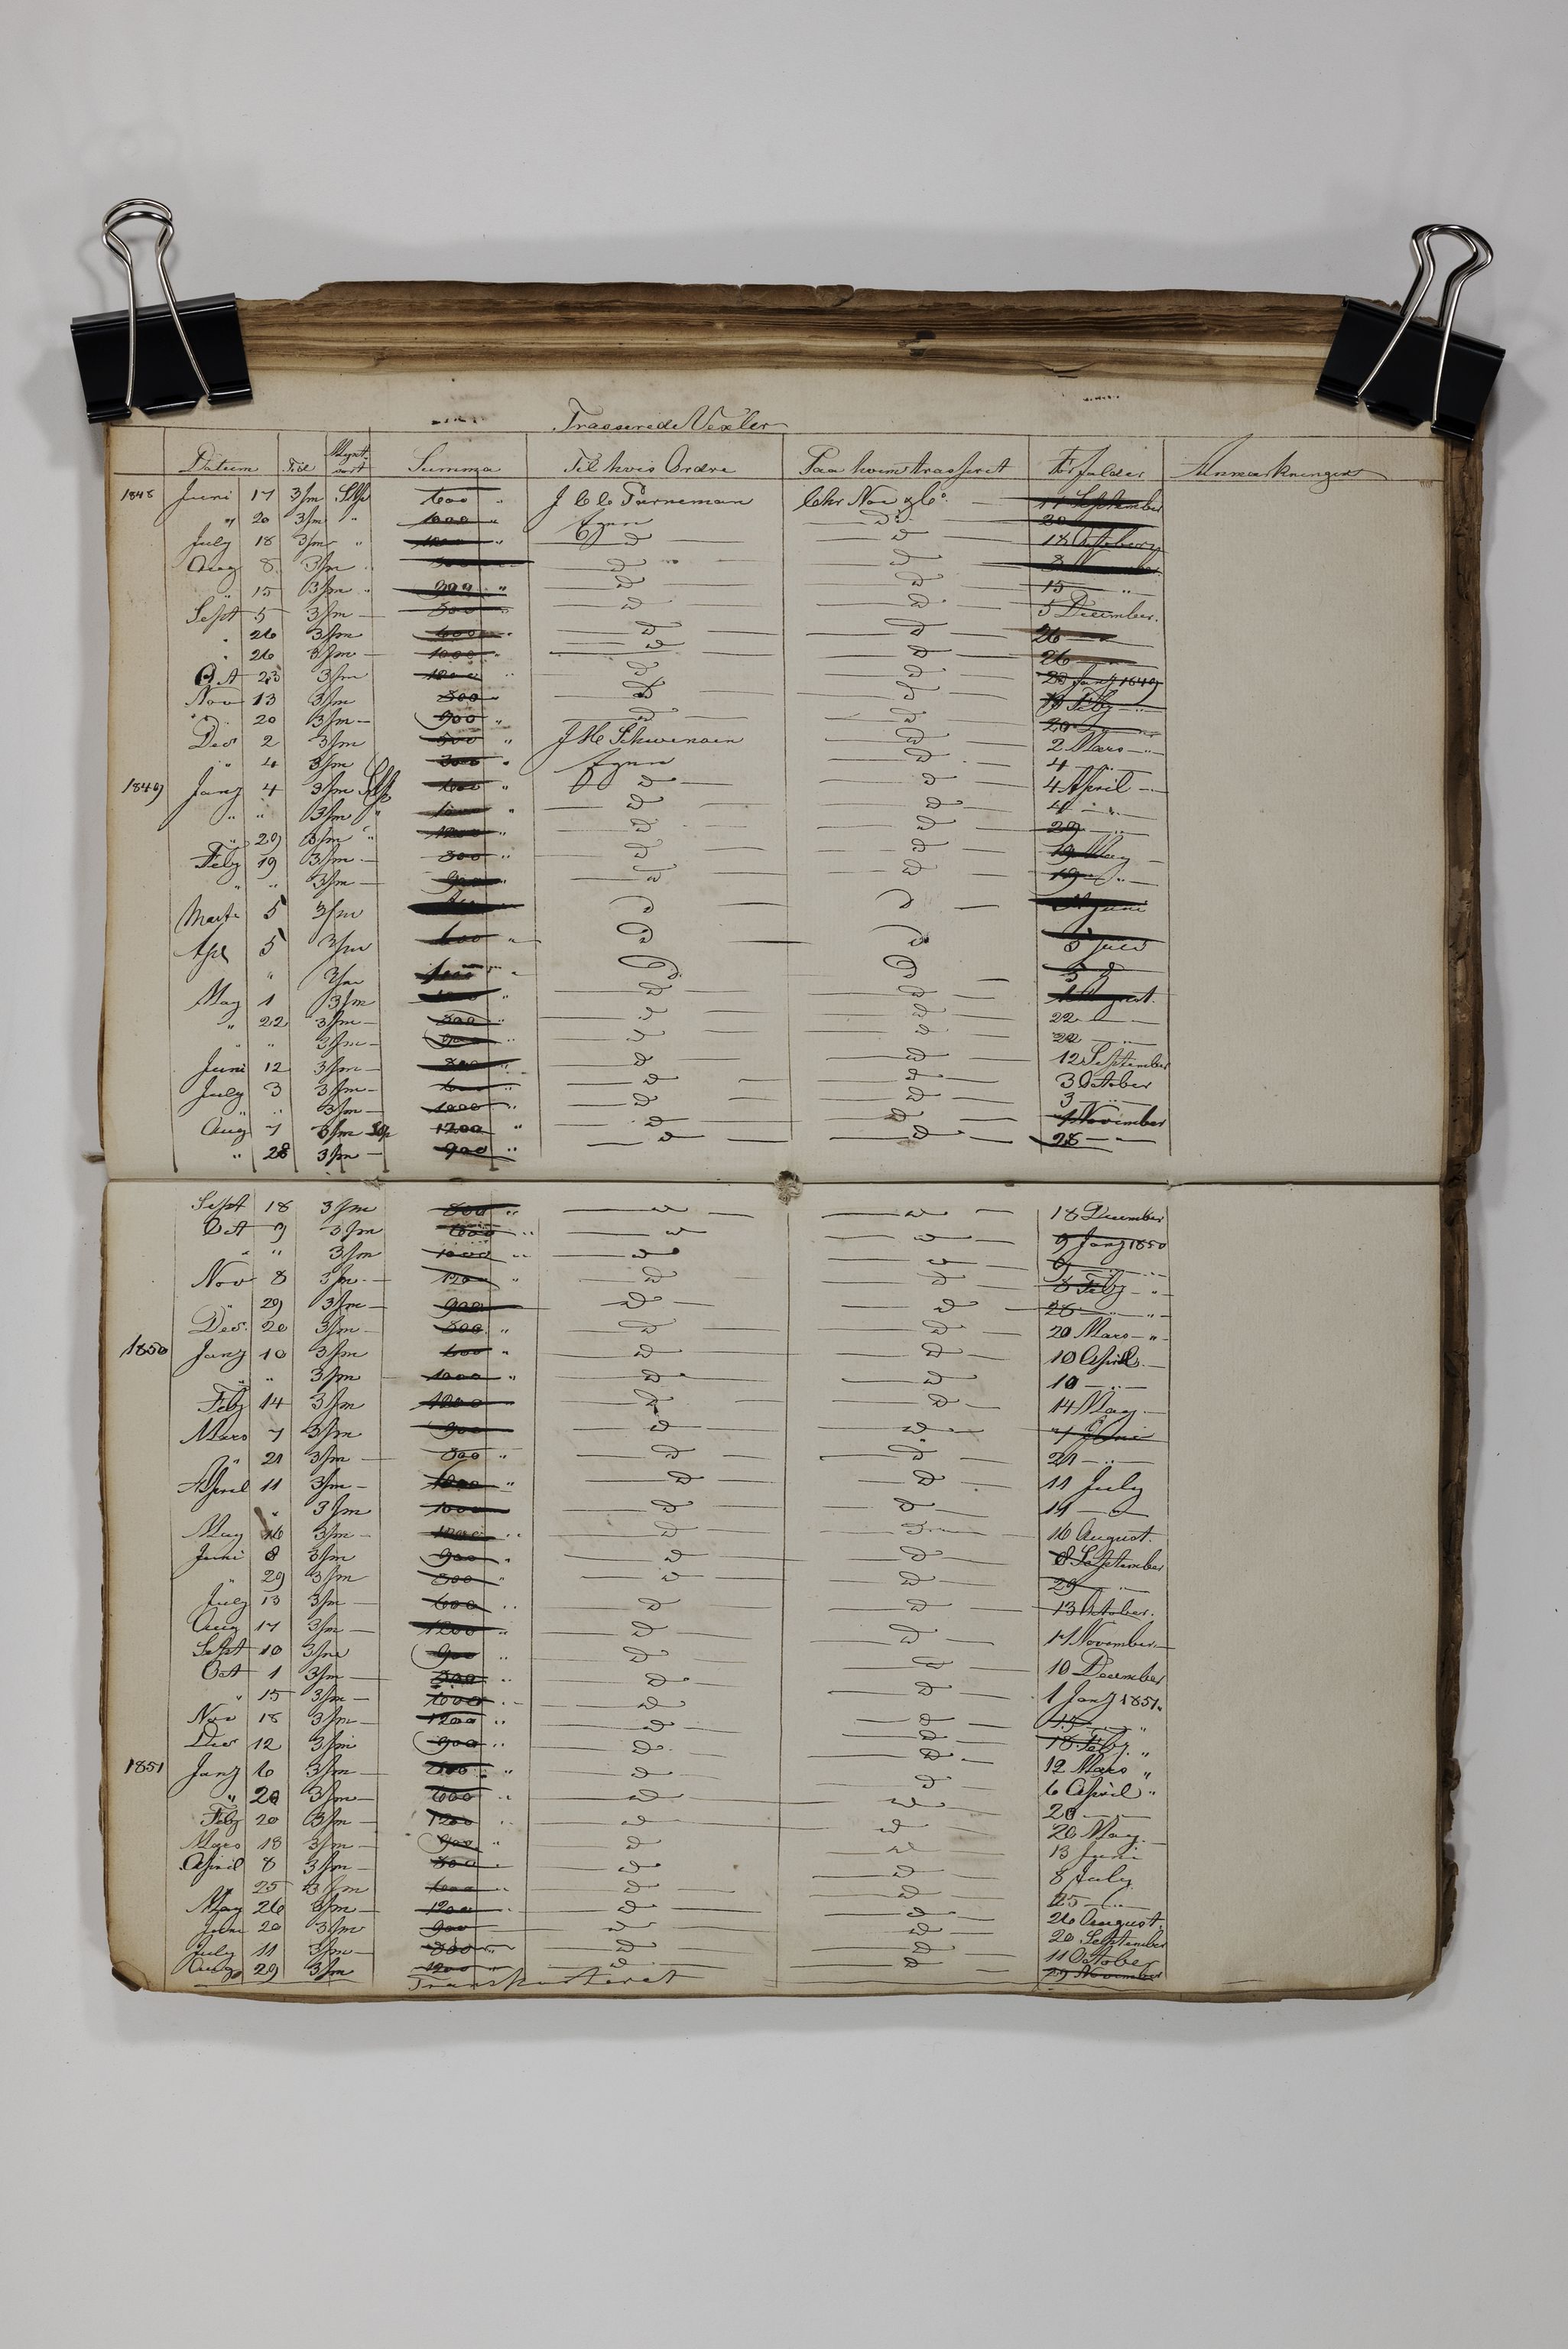 Trasserede Vexler
Datum Tid Mynt sort Summa Til hvis Ordre Paa hvem trasseret Forfalder Anmærkninger
1848 Juni 17 3/m 600 " J C C Chr Noe & Co 17 September
" 20 3/m " 1000 " Egen do 20
July 18 3/m " 1200 " do do 18 October
Aug 8 3/m do do 8
" 15 3/m " 900 " do do 15 "
Sept 5 3/m 800 " do do 5 December
" 26 3/m 600 " do do 26
" 26 3/m 1000 " do do 26
Oct 23 3/m 1200 " do do 23 Janу 1849
Nov 13 3/m 800 do do 13 Feby "
" 20 3/m 900 " do do 20
Dec 2 3/m 500 " J H do 2 Mars "
" 4 3/m 300 " Egen do 4 "
1849 Jany 4 3/m 600 " do do 4 April "
" " 3/m " 1000 " do do 4 "
" 29 3/m " 1200 " do do 29 "
Feby 19 3/m 800 " do do 19 May
" " 3/m 900 " do do 19 "
Marts 5 3/m do do Juni
Apl 5 3/m 600 " do do 5 Juli
" 3/m 1000 " do do 5 d
May 1 3/m 1200 " do do 1 August
" 22 3/m 800 " do do 22
" " 3/m 900 do do 22 "
Juni 12 3/m 800 " do do 12 September
July 3 3/m 600 " do do 3 October
" " 3/m 1000 " do do 3 "
Aug 7 3/m 1200 " do do 7 November
" 28 3/m 900 " do do 28 "
Sept 18 3/m 800 " do do 18 December
Oct 9 3/m 600 " do do 9 Jany 1850
" " 3/m 1000 " do do 9 "
Nov 8 3/m 1200 " do do 8 Feby "
" 29 3/m 900 do do 28 "
Dec. 20 3/m 800 " do do 20 Mars "
1850 Jany 10 3/m 600 " do do 10 April
" " 3/m 1000 " do do 10 "
Feby 14 3/m 1200 do do 14 May
Mars 7 3/m 900 " do do 7 Juni
" 21 3/m 800 " do do 21 "
April 11 3/m 1000 " do do 11 July
" 3/m 1000 do do 11
May 16 3/m 1200 " do do 16 August
Juni 8 3/m 900 " do do 8 September
" 29 3/m 800 " do do 29 "
July 13 3/m 600 " do do 13 October
Aug 17 3/m 1200 " do do 17 November
Sept 10 3/m 900 " do do 10 December
Oct 1 3/m 800 " do do 1 Jany 1851
" 15 3/m 1000 " do do 15 "
Nov 18 3/m 1200 " do do 18 Feby "
Dec 12 3/m 900 " do do 12 Mars "
1851 Jany 6 3/m 800 " do do 6 April "
" 20 3/m 600 " do do 20 "
Feby 20 3/m 1200 " do do 20 May
Mars 18 3/m 900 " do do 13 Juni
April 8 3/m 800 " do do 8 July
" 25 3/m 1000 " do do 25 "
May 26 3/m 1200 " do do 26 August
Juni 20 3/m 900 do do 20 September
July 11 3/m 800 " do do 11 October
Aug 29 3/m 1200 " do do 29 November
Transporteret